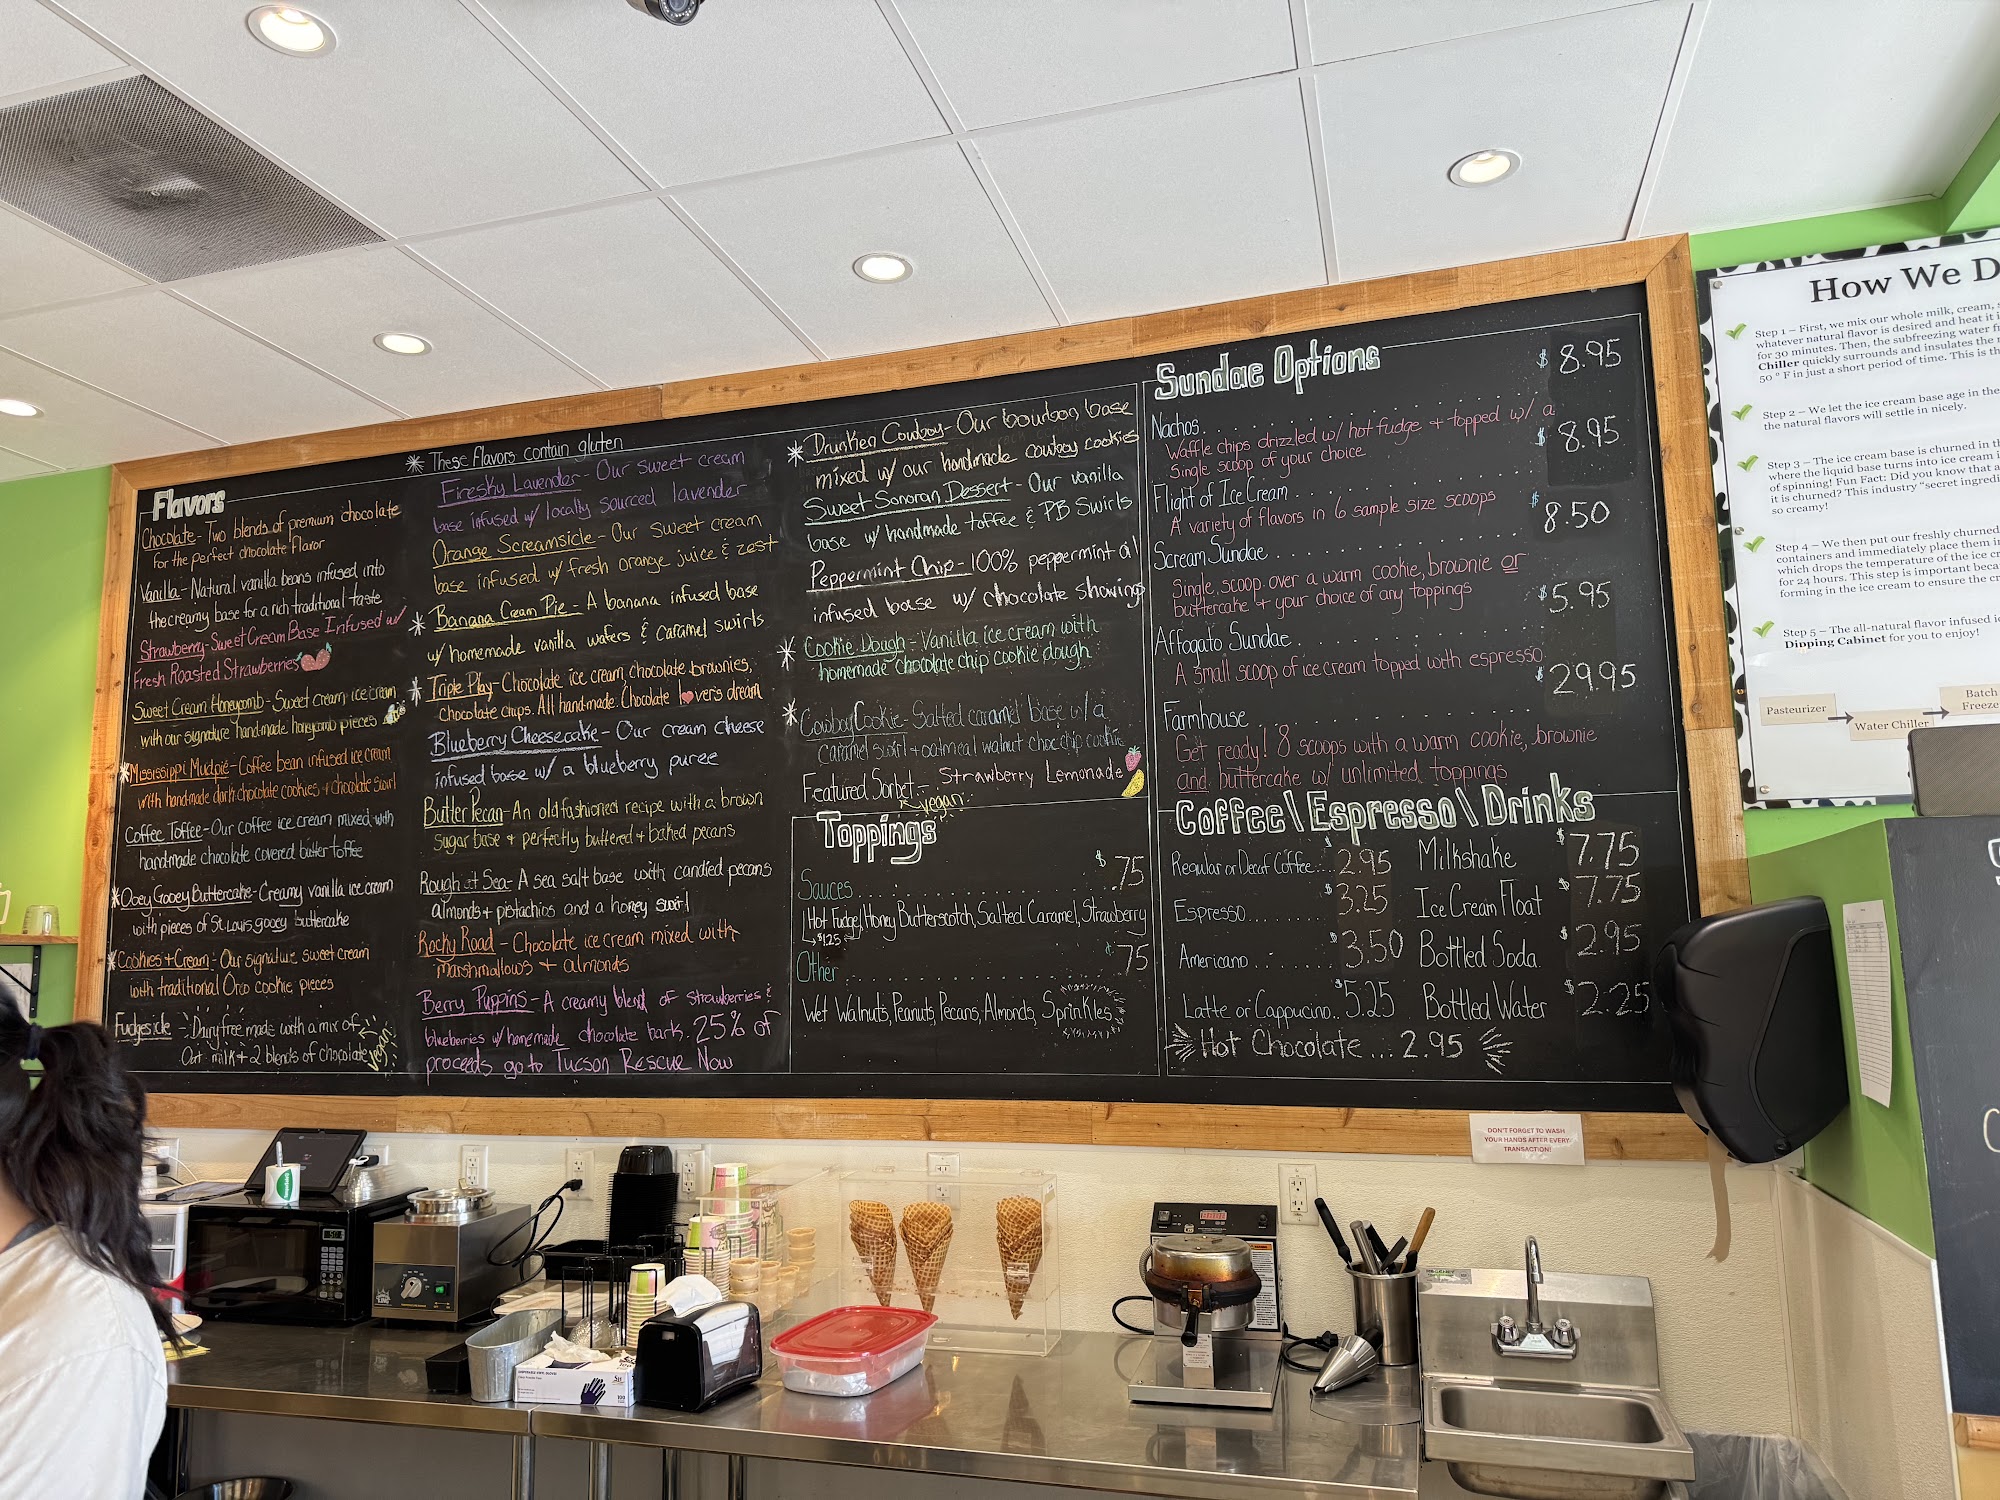 Flavors
Chocolate - Two blends of premium chocolate
for the perfect chocolate flavor
Vanilla - Natural vanilla beans infused into
the creamy base for a rich traditional taste
Strawberry - Sweet Cream Base Infused w/
Fresh Roasted Strawberries
Sweet Cream Honeycomb - Sweet cream ice cream
with our signature handmade honeycomb pieces
* Mississippi Mudpie - Coffee bean infused ice cream
with handmade dark chocolate cookies + chocolate swirl
Coffee Toffee - Our coffee ice cream mixed with
handmade chocolate covered butter toffee
* Ooey Gooey Buttercake - Creamy vanilla ice cream
with pieces of St. Louis gooey buttercake
* Cookies + Cream - Our signature sweet cream
with traditional Oreo cookie pieces
Fudgesicle - Dairy free made with a mix of
Oat milk + 2 blends of chocolate
vegan
* These flavors contain gluten
Firesky Lavender - Our sweet cream
base infused w/ locally sourced lavender
Orange Screamsicle - Our sweet cream
base infused w/ fresh orange juice & zest
* Banana Cream Pie - A banana infused base
w/ homemade vanilla wafers & caramel swirls
* Triple Play - Chocolate ice cream, chocolate brownies,
chocolate chips. All handmade. Chocolate lovers dream
Blueberry Cheesecake - Our cream cheese
infused base w/ a blueberry puree
Butter Pecan - An old fashioned recipe with a brown
sugar base + perfectly buttered + baked pecans
Rough at Sea - A sea salt base with candied pecans
almonds + pistachios and a honey swirl
Rocky Road - Chocolate ice cream mixed with
marshmallows + almonds
Berry Puppins - A creamy blend of strawberries &
blueberries w/ homemade chocolate bark. 25% of
proceeds go to Tucson Rescue Now
* Drunken Cowboy - Our bourbon base
mixed w/ our handmade cowboy cookies
Sweet Sonoran Dessert - Our vanilla
base w/ handmade toffee & PB Swirls
Peppermint Chip - 100% peppermint oil
infused base w/ chocolate shavings
* Cookie Dough - Vanilla ice cream with
homemade chocolate chip cookie dough
* Cowboy Cookie - Salted caramel base w/ a
caramel swirl + oatmeal walnut choc chip cookie
Featured Sorbet - Strawberry Lemonade
vegan
Toppings
Sauces $.75
Hot Fudge, Honey Butterscotch, Salted Caramel, Strawberry
$1.25
Other $.75
Wet Walnuts, Peanuts, Pecans, Almonds, Sprinkles
Sundae Options
Nachos $8.95
Waffle chips drizzled w/ hot fudge + topped w/ a
Single scoop of your choice
Flight of Ice Cream $8.95
A variety of flavors in 6 sample size scoops
Scream Sundae $8.50
Single scoop over a warm cookie, brownie or
buttercake + your choice of any toppings
Affogato Sundae $5.95
A small scoop of ice cream topped with espresso
Farmhouse $29.95
Get ready! 8 scoops with a warm cookie, brownie
and buttercake w/ unlimited toppings
Coffee\Espresso\Drinks
Regular or Decaf Coffee $2.95
Espresso $3.25
Americano $3.50
Latte or Cappucino $5.25
Milkshake $7.75
Ice Cream Float $7.75
Bottled Soda $2.95
Bottled Water $2.25
Hot Chocolate ... 2.95
How We D
Step 1 – First, we mix our whole milk, cream,
whatever natural flavor is desired and heat it
for 30 minutes. Then, the subfreezing water
Chiller quickly surrounds and insulates the
50 ° F in just a short period of time. This is
Step 2 – We let the ice cream base age in the
the natural flavors will settle in nicely.
Step 3 – The ice cream base is churned in
where the liquid base turns into ice cream
of spinning! Fun Fact: Did you know that
it is churned? This industry "secret
so creamy!
Step 4 – We then put our freshly churned
containers and immediately place them
which drops the temperature of the ice
for 24 hours. This step is important
forming in the ice cream to ensure the
Step 5 – The all-natural flavor infused
Dipping Cabinet for you to enjoy!
Pasteurizer
Water Chiller
Batch
DON'T FORGET TO WASH
YOUR HANDS AFTER EVERY
TRANSACTION!